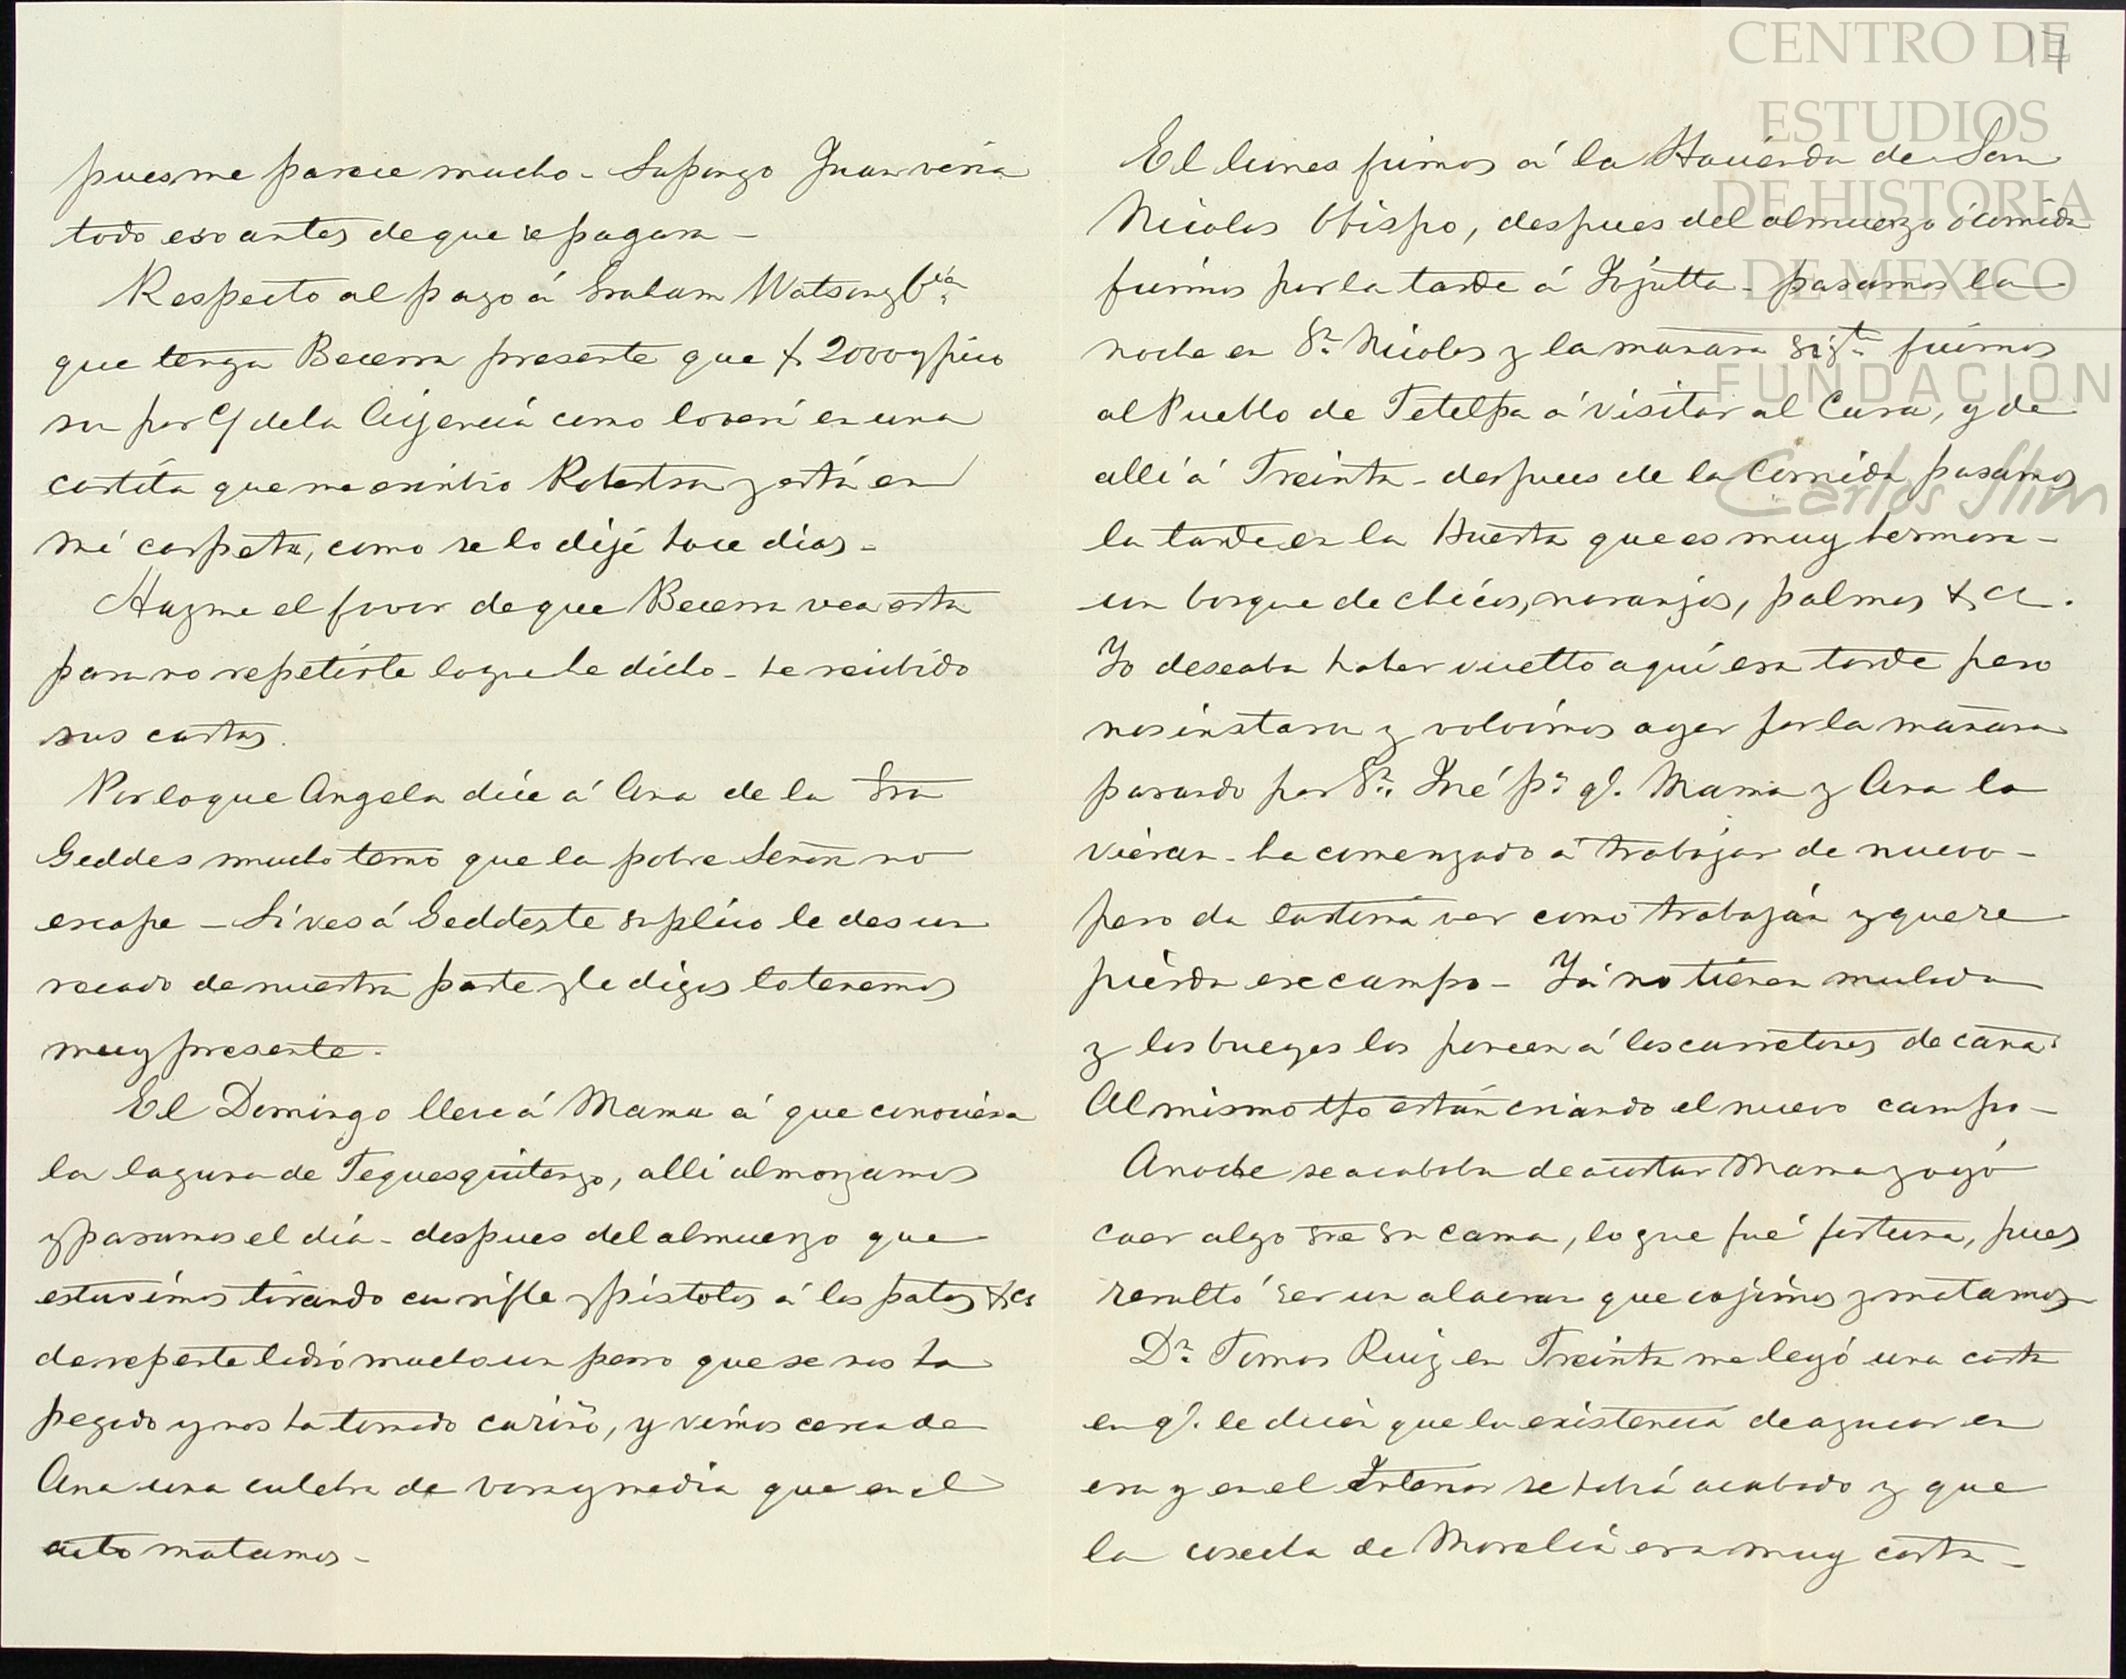 pues me parece mucho - Supongo Juan veria
todo eso antes de que se pagara -
Respecto al pago á Graham Watson y Cia.
que tenga Becerra presente que $ 2000 y pico
son por C/ de la Agencia como lo verá en una
cartita que me escribió Robertson y está en
mi carpeta, como se lo dije hace dias -
Hazme el favor de que Becerra vea esta
para no repetirle lo que he dicho - he recibido
sus cartas.
Por lo que Angela dice á Ana de la Sra
Geddes mucho temo que la pobre Señora no
escape - Si ves á Geddes te suplico le des un
recado de nuestra parte y le digas lo tenemos
muy presente.
El Domingo llevé á Mama á que conociera
la laguna de Tequesquitengo, alli almorzamos
y pasamos el dia - despues del almuerzo que
estuvimos tirando con rifle y pistolas á los patos &ca
de repente ladró mucho un perro que se nos ha
pegado y nos ha tomado cariño, y vimos cerca de
Ana una culebra de vara y media que en el
acto matamos -
17
El lunes fuimos á la Hacienda de San
Nicolas Obispo, despues del almuerzo ó comida
fuimos por la tarde á Jojutla - pasamos la
noche en Sn. Nicolas y la mañana sigte fuimos
al Pueblo de Tetelpa á visitar al Cura, y de
alli á Treinta - despues de la Comida pasamos
la tarde en la Huerta que es muy hermosa -
un bosque de chicos, naranjos, palmas &ca.
Yo deseaba haber vuelto aquí esa tarde pero
nos instaron y volvimos ayer por la mañana
pasando por Sn. José pa. q. Mama y Ana la
vieran - ha comenzado á trabajar de nuevo -
pero da lastima ver como trabajan y que se
pierda ese campo - Ya no tienen mulada
y los bueyes los ponen á los carretones de caña.
Al mismo tpo estan criando el nuevo campo -
Anoche se acababa de acostar Mama y oyó
caer algo sre su cama, lo que fué fortuna, pues
resultó ser un alacran que cojimos y matamos
Dn. Tomas Ruiz en Treinta me leyó una carta
en q. le dicen que la existencia de azucar en
esa y en el Interior se habrá acabado y que
la cosecha de Morelia era muy corta -
CENTRO DE
ESTUDIOS
DE HISTORIA
DE MEXICO
FUNDACIÓN
Carlos Slim